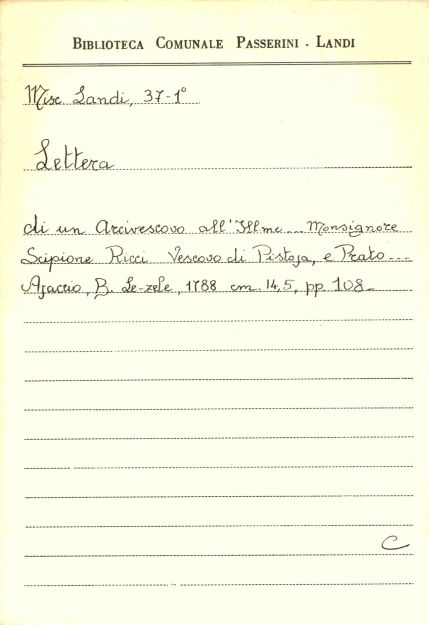 BIBLIOTECA COMUNALE PASSERINI - LANDI
Misc Landi, 37-1°
Lettera
di un Arcivescovo all'Illmo... Monsignore
Scipione Ricci Vescovo di Pistoja, e Prato---
Ajaccio, B. Le-zele, 1788 cm. 14,5, pp. 108-
C